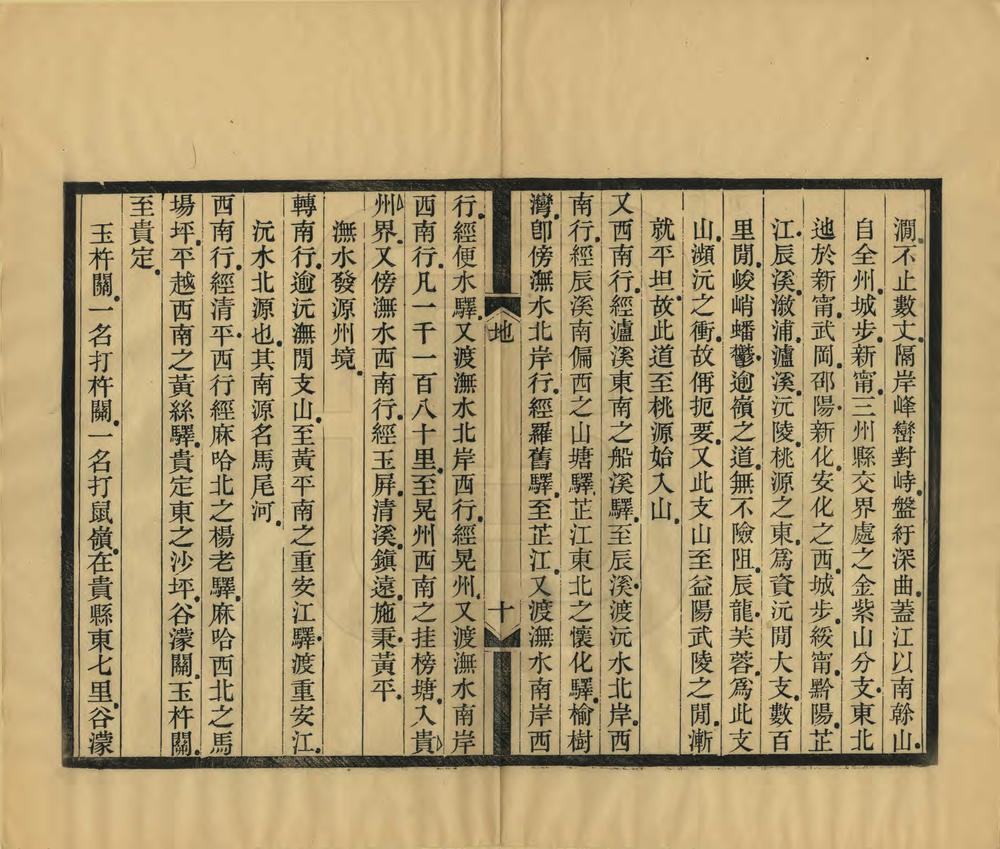 澗不止數丈隔岸峰巒對峙盤紆深曲蓋江以南幹山
自全州城步新甯三州縣交界處之金紫山分支東北
迆於新甯武岡邵陽新化安化之西城步綏甯黔陽芷
江辰溪漵浦瀘溪沅陵桃源之東爲資沅閒大支數百
里閒峻峭蟠鬱逾嶺之道無不險阻辰龍芙蓉爲此支
山瀕沅之衝故偁扼要又此支山至益陽武陵之閒漸
就平坦故此道至桃源始入山
又西南行經瀘溪東南之船溪驛至辰溪渡沅水北岸西
南行經辰溪南偏西之山塘驛芷江東北之懷化驛榆樹
灣卽傍潕水北岸行經羅舊驛至芷江又渡潕水南岸西
地
十
行經便水驛又渡潕水北岸西行經晃州又渡潕水南岸
西南行凡一千一百八十里至晃州西南之挂榜塘入貴
州界又傍潕水西南行經玉屏清溪鎭遠施秉黃平
潕水發源州境
轉南行逾沅潕閒支山至黃平南之重安江驛渡重安江
沅水北源也其南源名馬尾河
西南行經清平西行經麻哈北之楊老驛麻哈西北之馬
場坪平越西南之黃絲驛貴定東之沙坪谷濛關玉杵關
至貴定
玉杵關一名打杵關一名打鼠嶺在貴縣東七里谷濛